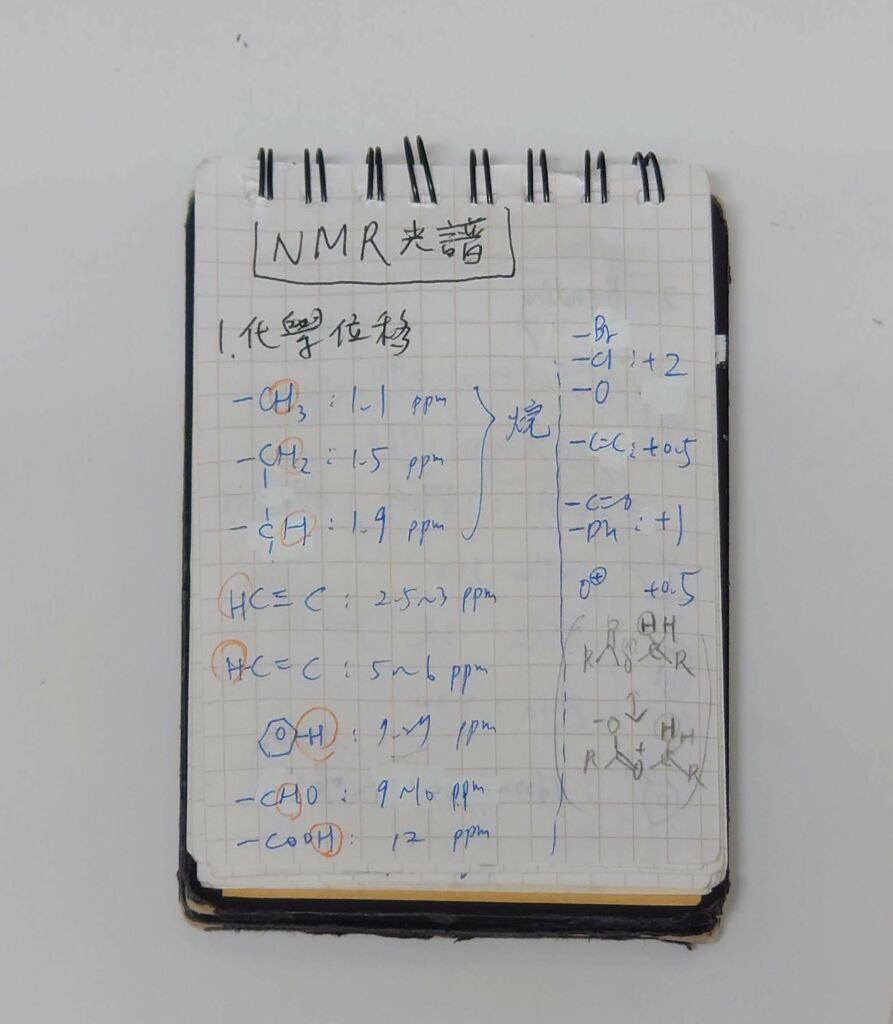 NMR光譜
1.化學位移
-CH3 : 1.1 ppm
-CH2 : 1.5 ppm
-CH : 1.9 ppm
烷
HC≡C : 2.5~3 ppm
HC=C : 5~6 ppm
-H : ppm
-CHO : 9~10 ppm
-COOH : 12 ppm
-Br
-Cl : +2
-O
-C=C : +0.5
-C=O
-Ph : +1
O⊕ +0.5
O H H
R O C R
↕
-O H H
R O + C R